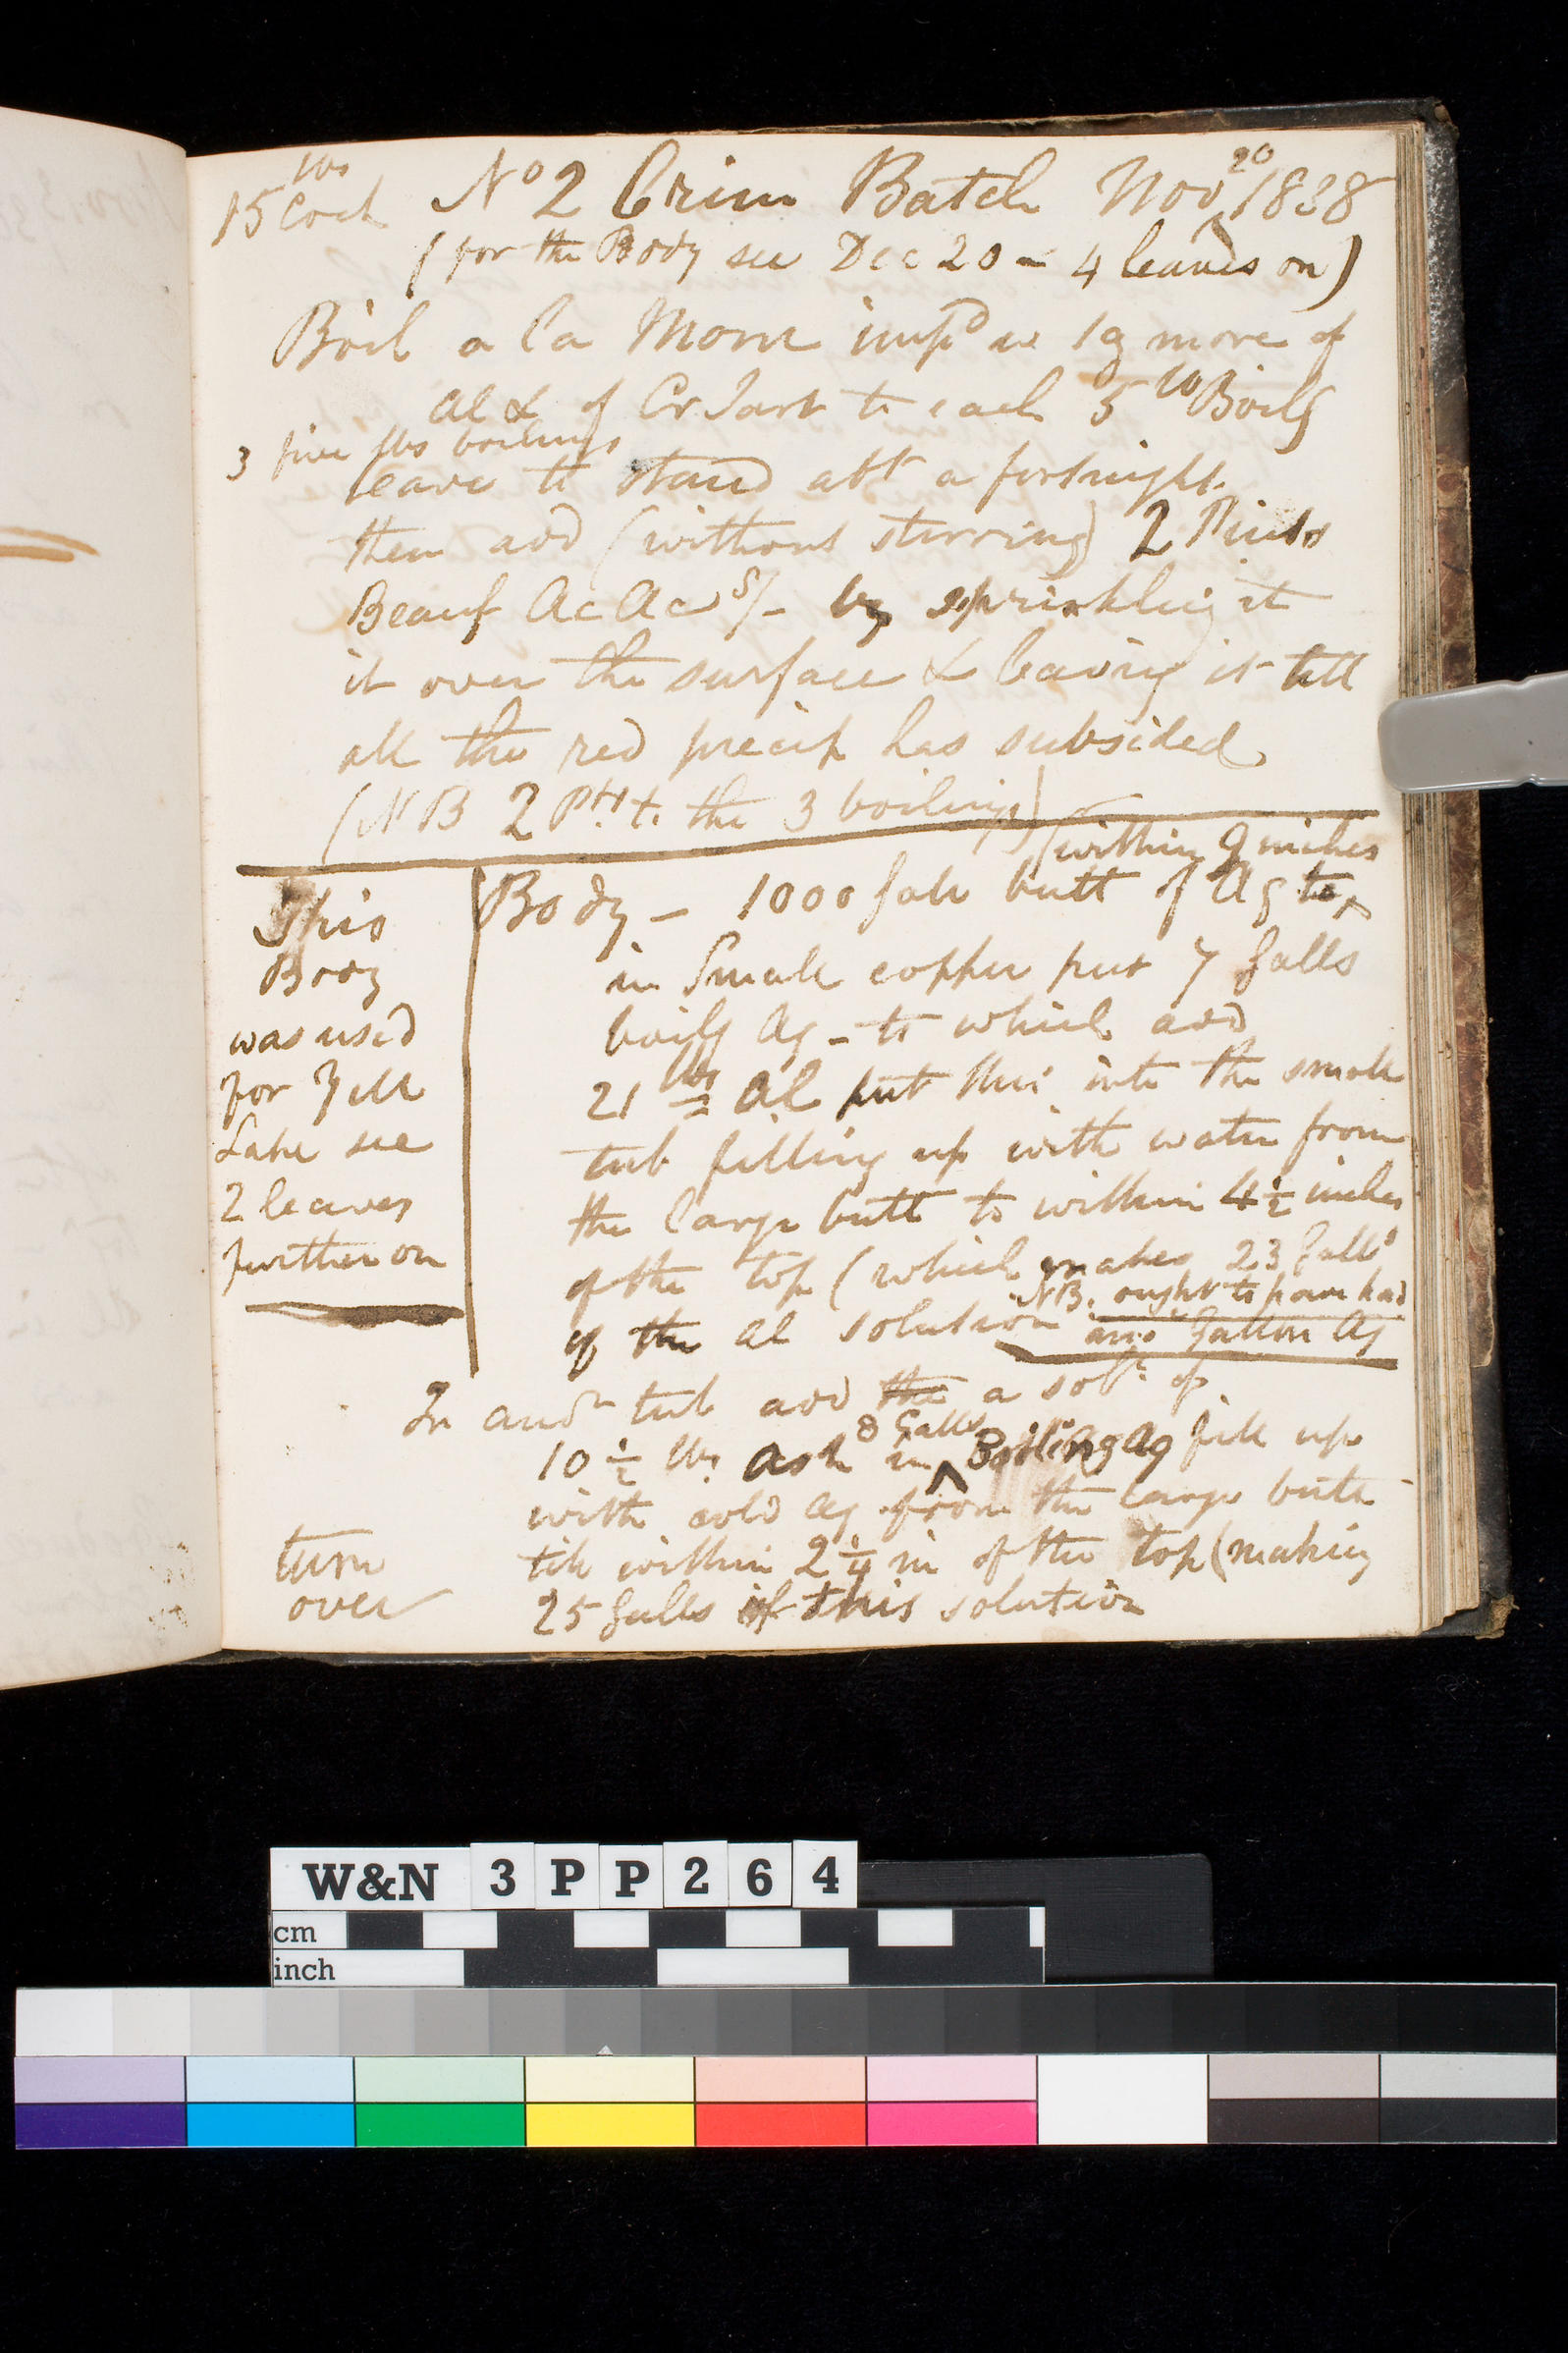 15 lbs Coch No 2 Crim Batch Nov 20 1838
(for the Body see Dec 20 - 4 leaves on)
Boil a la Morn impd w 1g more of
Al & of Cr Tart to each 5 lb Boilg
3 five lbs boilings
leave to stand abt a fortnight.
then add (without stirring) 2 Pints
Beauf Ac Ac S/- by sprinkling it
it over the surface & leaving it till
all the red precip has subsided
(NB 2 Pts to the 3 boilings)
(within 9 inches
Body - 1000 Gall butt of Aq to
in Small copper put 7 Galls
boilg Aq - to which add
21 lbs Al put this into the small
tub filling up with water from
the large butt to within 4½ inches
of the top (which makes 23 Galls
of the Al solution
NB. ought to have had
Gallon Aq
This
Body
was used
for Yell
Lake see
2 leaves
further on
In andr tub add the a soln of
10½ lbs Ash in 8 Galls Boiling Aq fill up
with cold Aq from the large butt
till within 2¼ in of the top (making
25 Galls of this solution
turn
over
W&N 3PP264
cm
inch